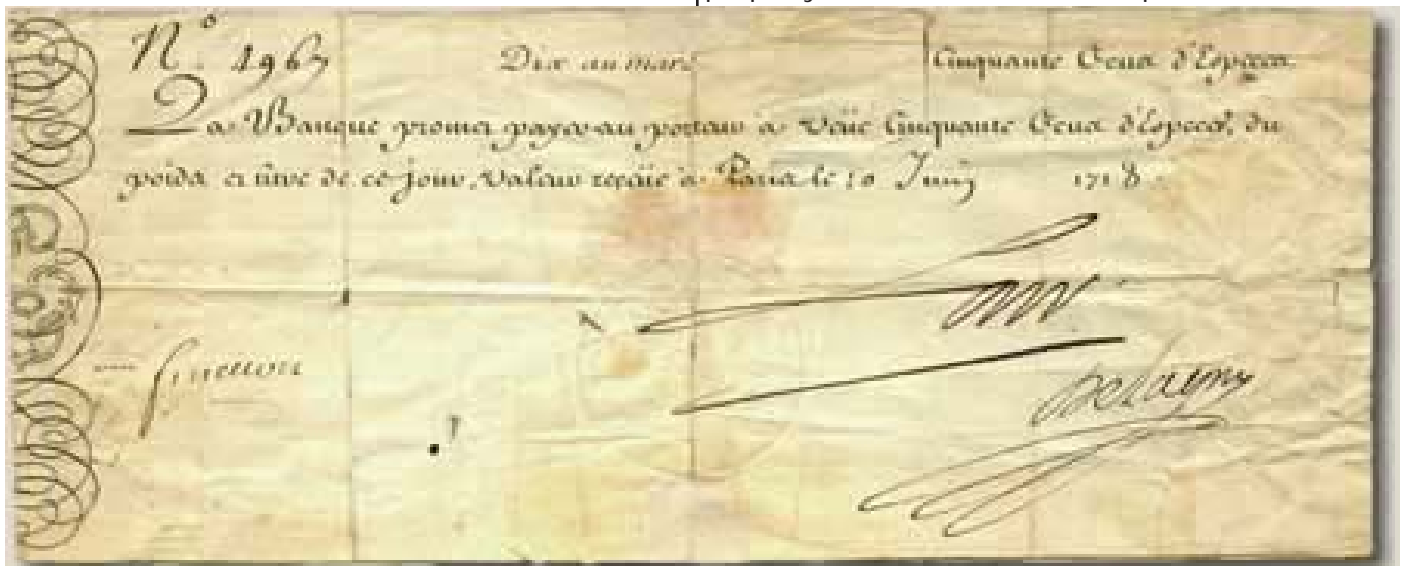 N.º 1967 Dix au marc Cinquante Ecus d'Especes.
La Banque promet payer au porteur a Vüe Cinquante Ecus d'Especes, du
poids et titre de ce jour, Valeur reçüe a Paris le 10 Juin 1718